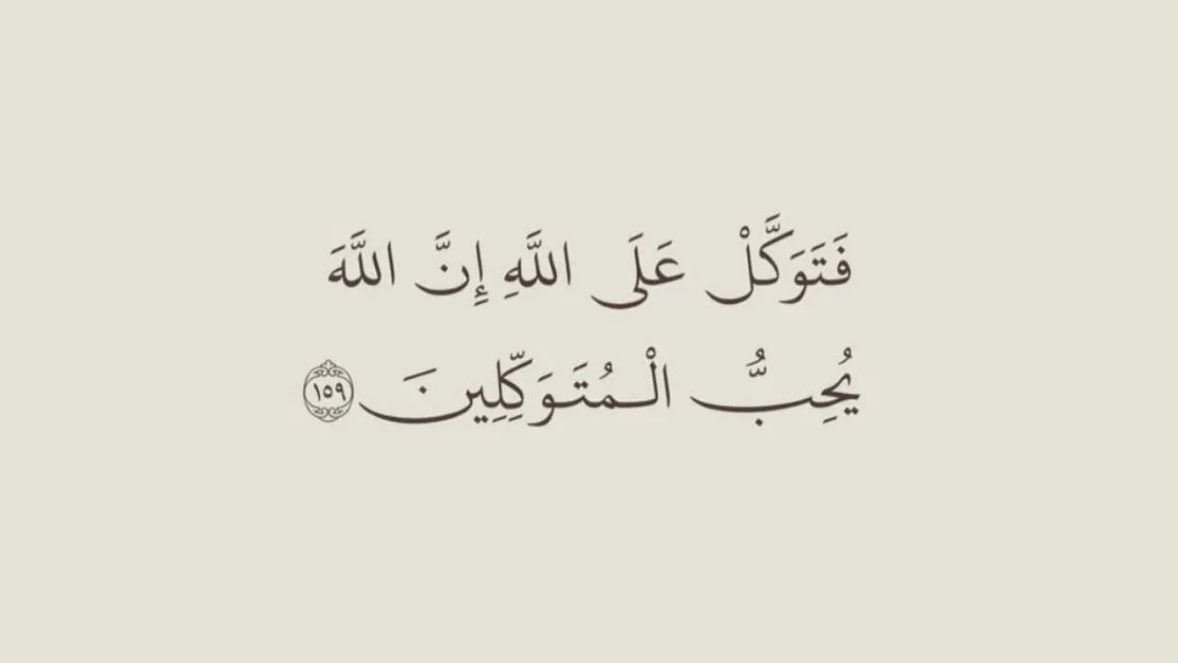 فَتَوَكَّلْ عَلَى اللَّهِ إِنَّ اللَّهَ
يُحِبُّ الْمُتَوَكِّلِينَ ١٥٩